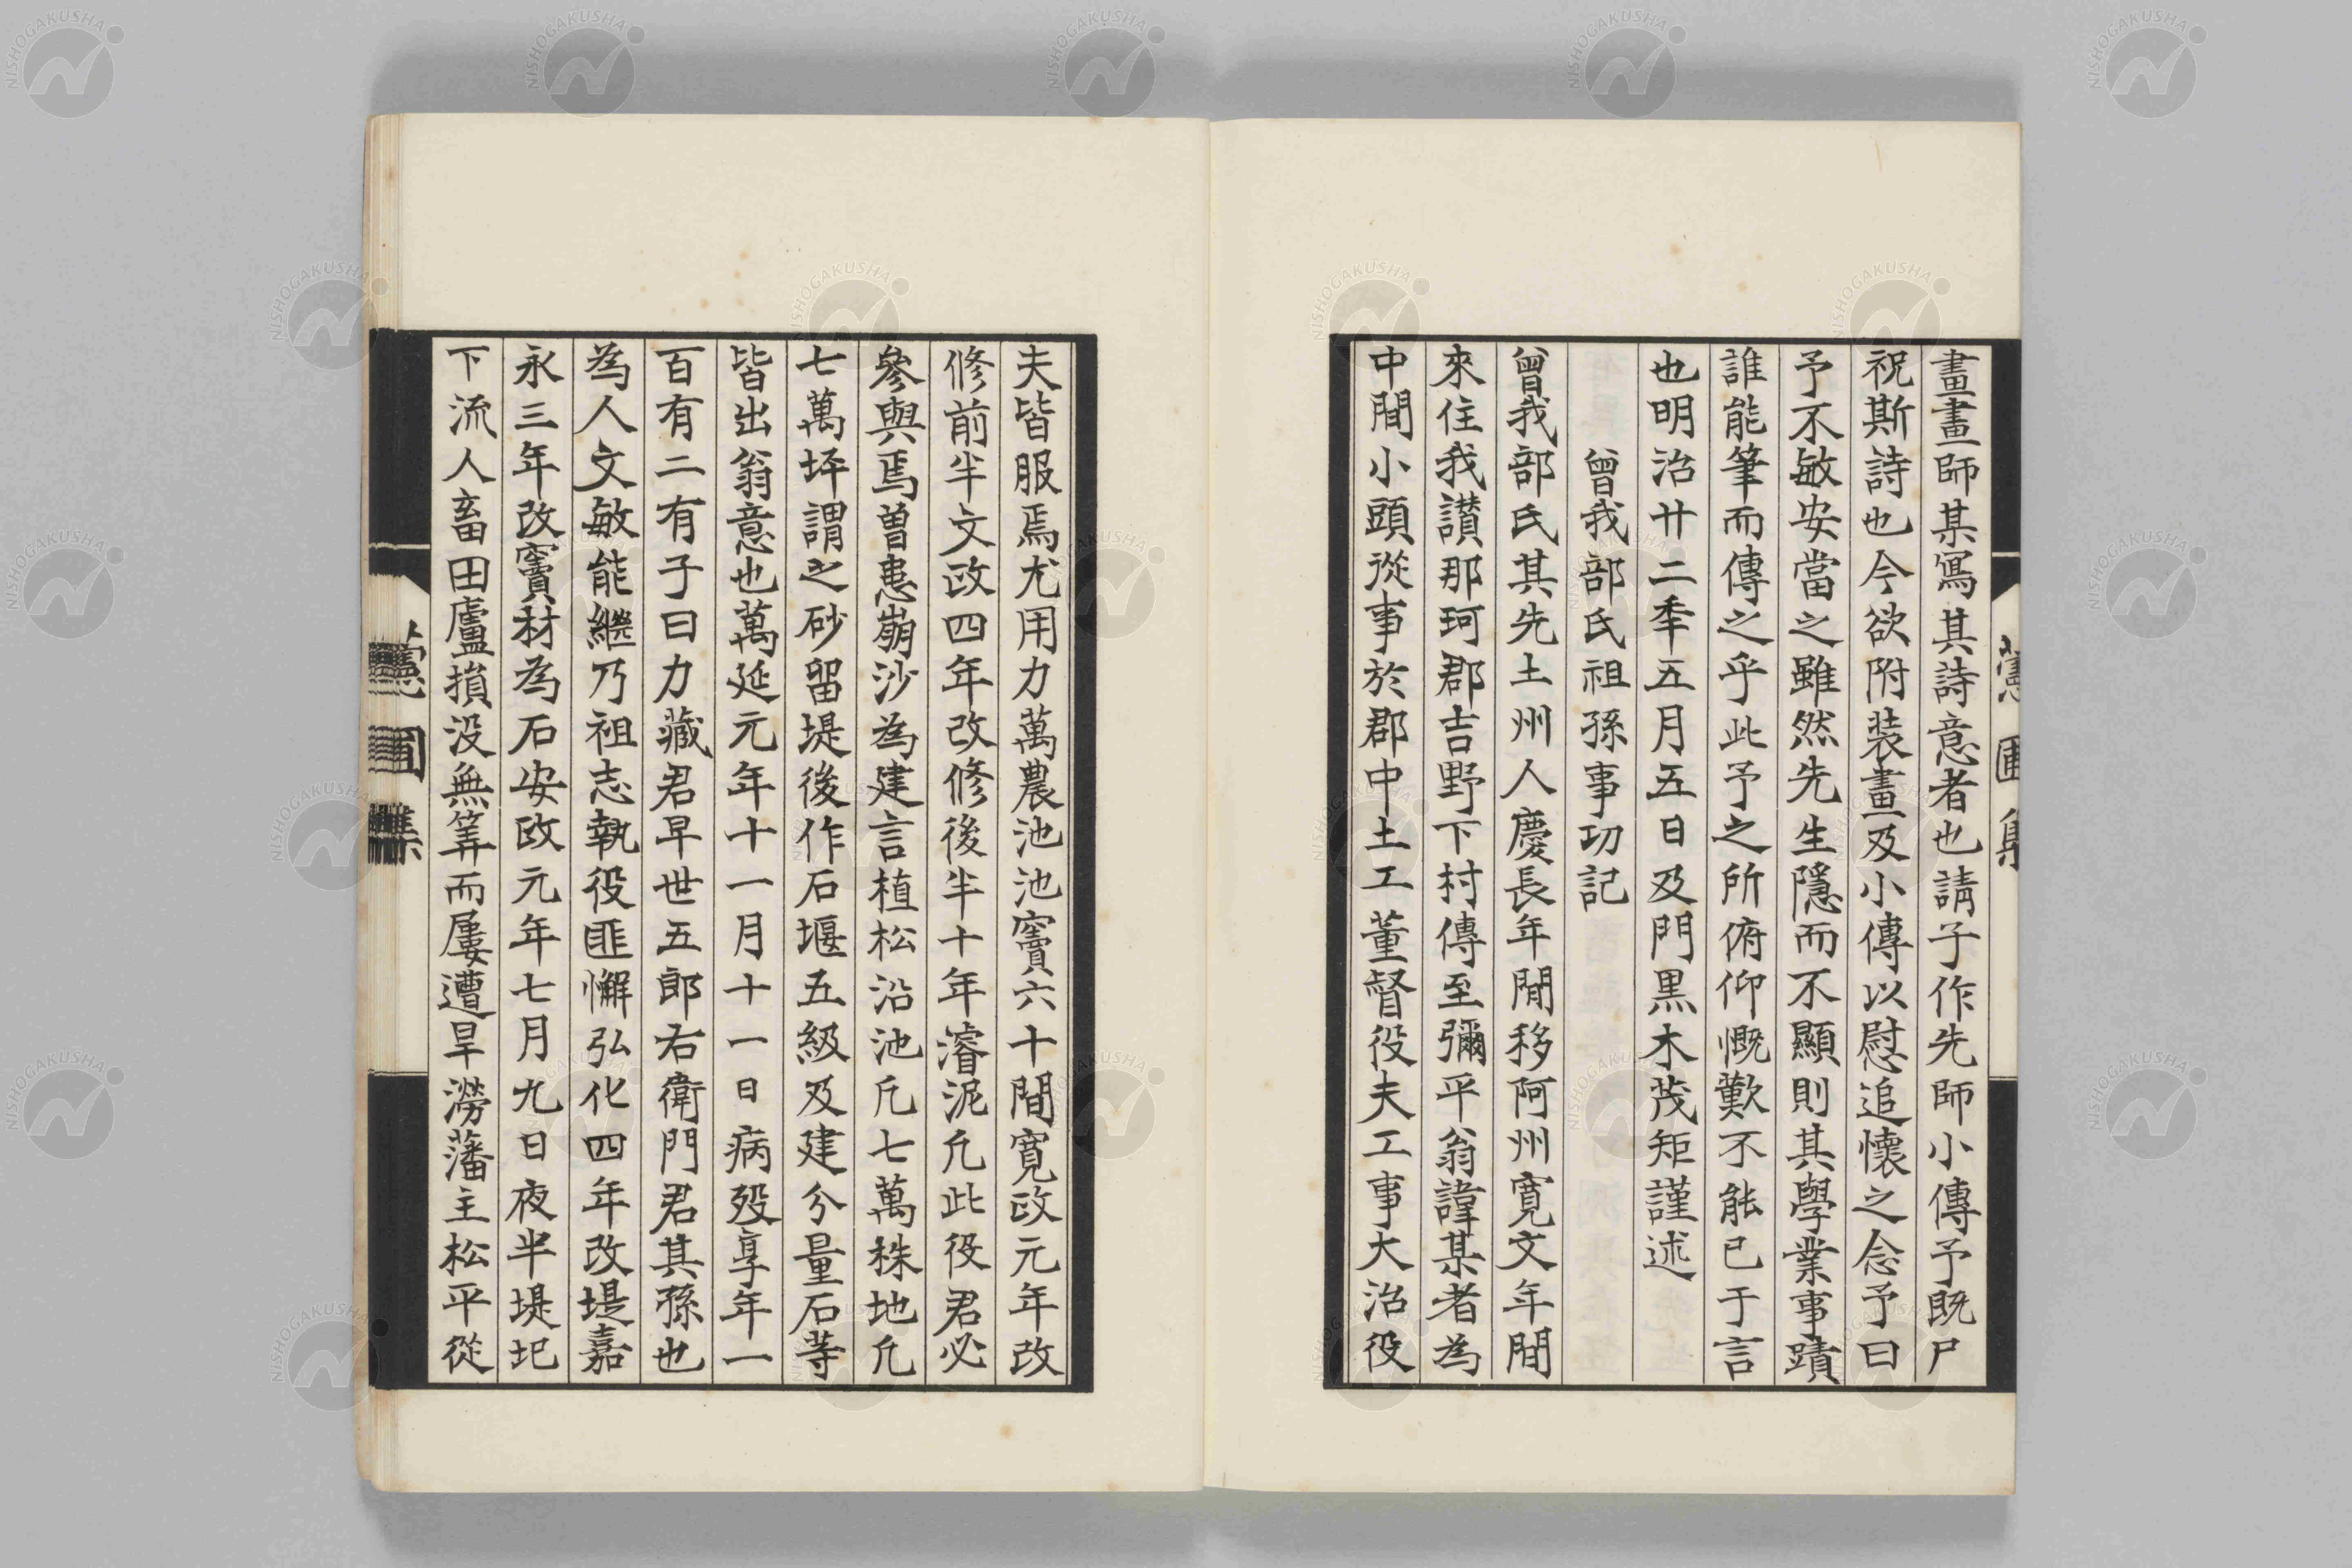 畫畫師某寫其詩意者也請予作先師小傳予既尸
祝斯詩也今欲附装畫及小傳以慰追懷之念予曰
予不敏安當之雖然先生隱而不顯則其學業事蹟
誰能筆而傳之乎此予之所俯仰慨歎不能已于言
也明治廿二秊五月五日及門黒木茂矩謹述
曾我部氏祖孫事功記
曾我部氏其先土州人慶長年間移阿州寛文年間
來住我讃那珂郡吉野下村傳至彌平翁諱某者為
中間小頭從事於郡中土工董督役夫工事大治役
夫皆服焉尤用力萬農池池竇六十間寛政元年改
修前半文政四年改修後半十年濬泥凢此役君必
參與焉曽患崩沙為建言植松沿池凢七萬株地凢
七萬坪謂之砂留堤後作石堰五級及建分量石等
皆出翁意也萬延元年十一月十一日病歿享年一
百有二有子曰力藏君早世五郎右衛門君其孫也
為人文敏能繼乃祖志執役匪懈弘化四年改堤嘉
永三年改竇材為石安政元年七月九日夜半堤圮
下流人畜田廬損没無筭而屢遭旱澇藩主松平從